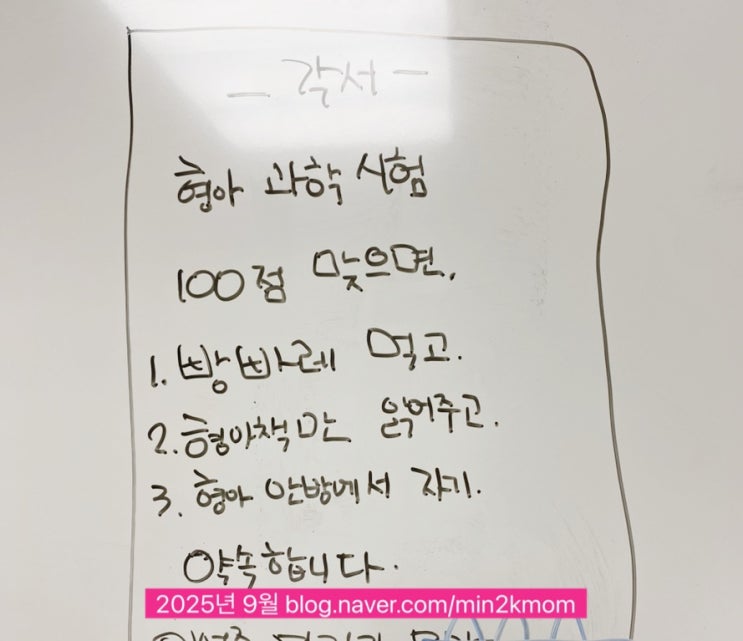 - 각서 -
형아 과학 시험
100점 맞으면,
1. 빵빠레 먹고.
2. 형아책만 읽어주고.
3. 형아 안방에서 자기.
약속합니다.
2025년 9월 blog.naver.com/min2kmom